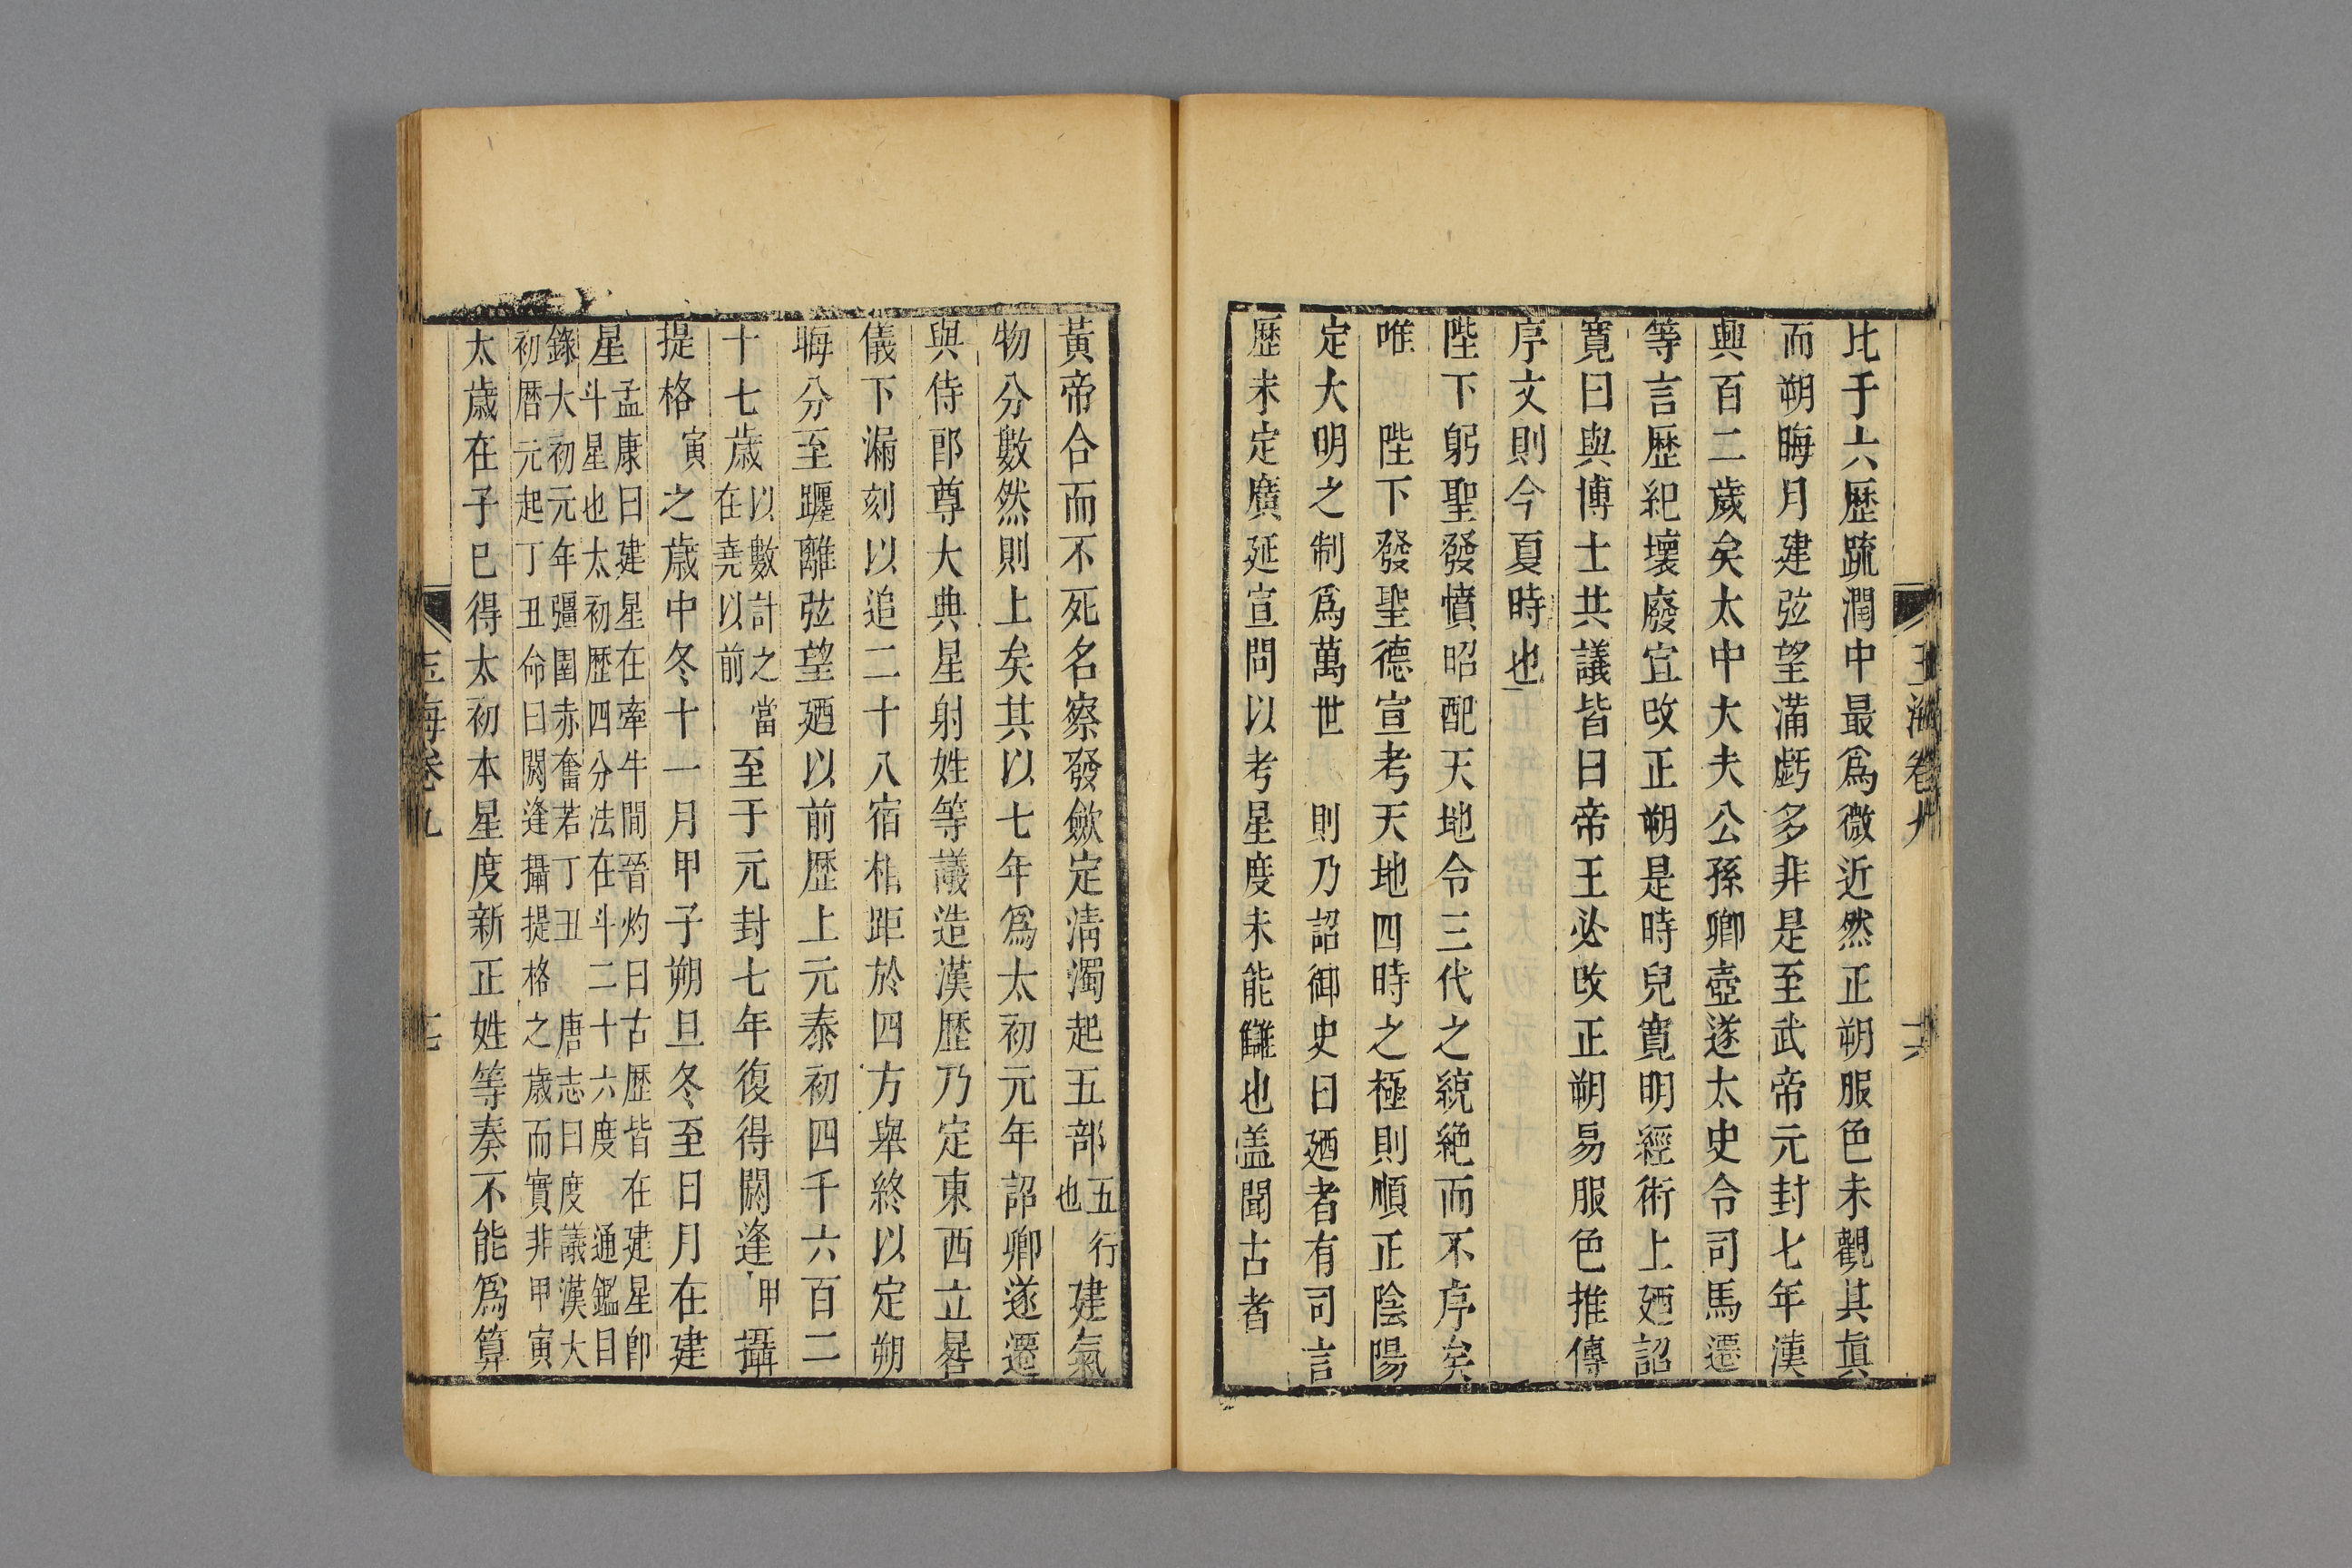 比于六歷疏濶中最爲微近然正朔服色未覩其眞
而朔晦月建弦望滿虧多非是至武帝元封七年漢
興百二歲矣太中大夫公孫卿壺遂太史令司馬遷
等言歷紀壞廢宜改正朔是時兒寬明經術上廼詔
寬曰與博士共議皆曰帝王必改正朔易服色推傳
序文則今夏時也
陛下躬聖發憤昭配天地令三代之統絶而不序矣
唯 陛下發聖德宣考天地四時之極則順正陰陽
定大明之制爲萬世 則乃詔御史曰廼者有司言
歷未定廣延宣問以考星度未能讎也盖聞古者
玉海卷九
黃帝合而不死名察發歛定淸濁起五部五行也建氣
物分數然則上矣其以七年爲太初元年詔卿遂遷
與侍郎尊大典星射姓等議造漢歷乃定東西立晷
儀下漏刻以追二十八宿相距於四方舉終以定朔
晦分至躔離弦望廼以前歷上元泰初四千六百二
十七歲以數計之當在堯以前至于元封七年復得閼逢甲攝
提格寅之歲中冬十一月甲子朔旦冬至日月在建
星孟康曰建星在牽牛間晉灼曰古歷皆在建星卽
斗星也太初歷四分法在斗二十六度 通鑑目
錄大初元年彊圉赤奮若丁丑 唐志曰度議漢大
初曆元起丁丑命曰閼逢攝提格之歲而實非甲寅
太歲在子已得太初本星度新正姓等奏不能爲算
玉海卷九